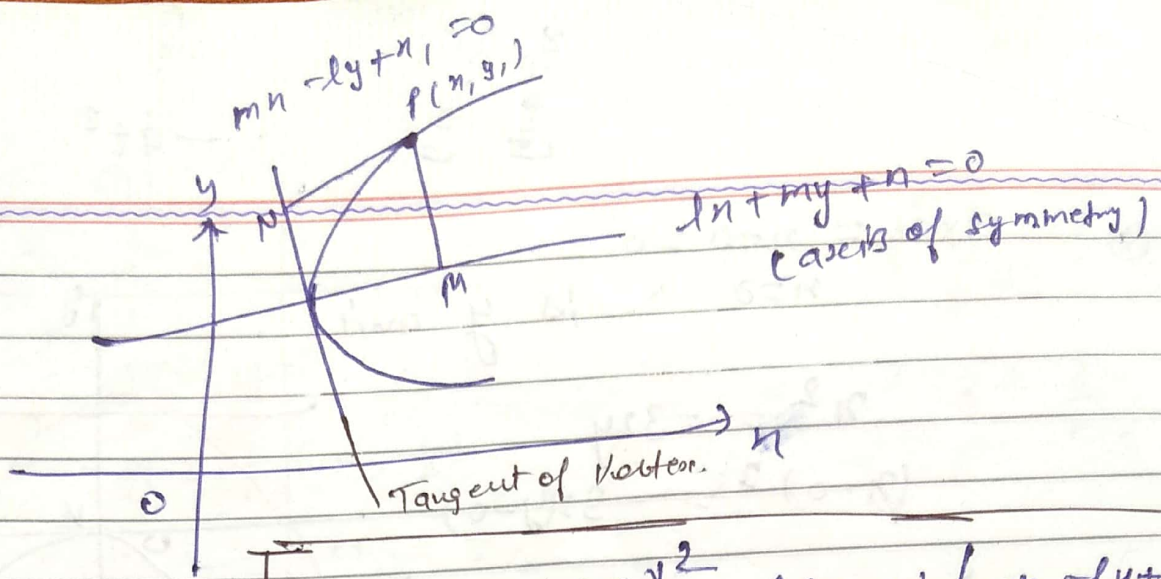 mn - ly + n₁ = 0
P(n₁ y₁)
y
N
ln + my + n = 0
(axis of symmetry)
M
n
O
Tangent of Vertex.